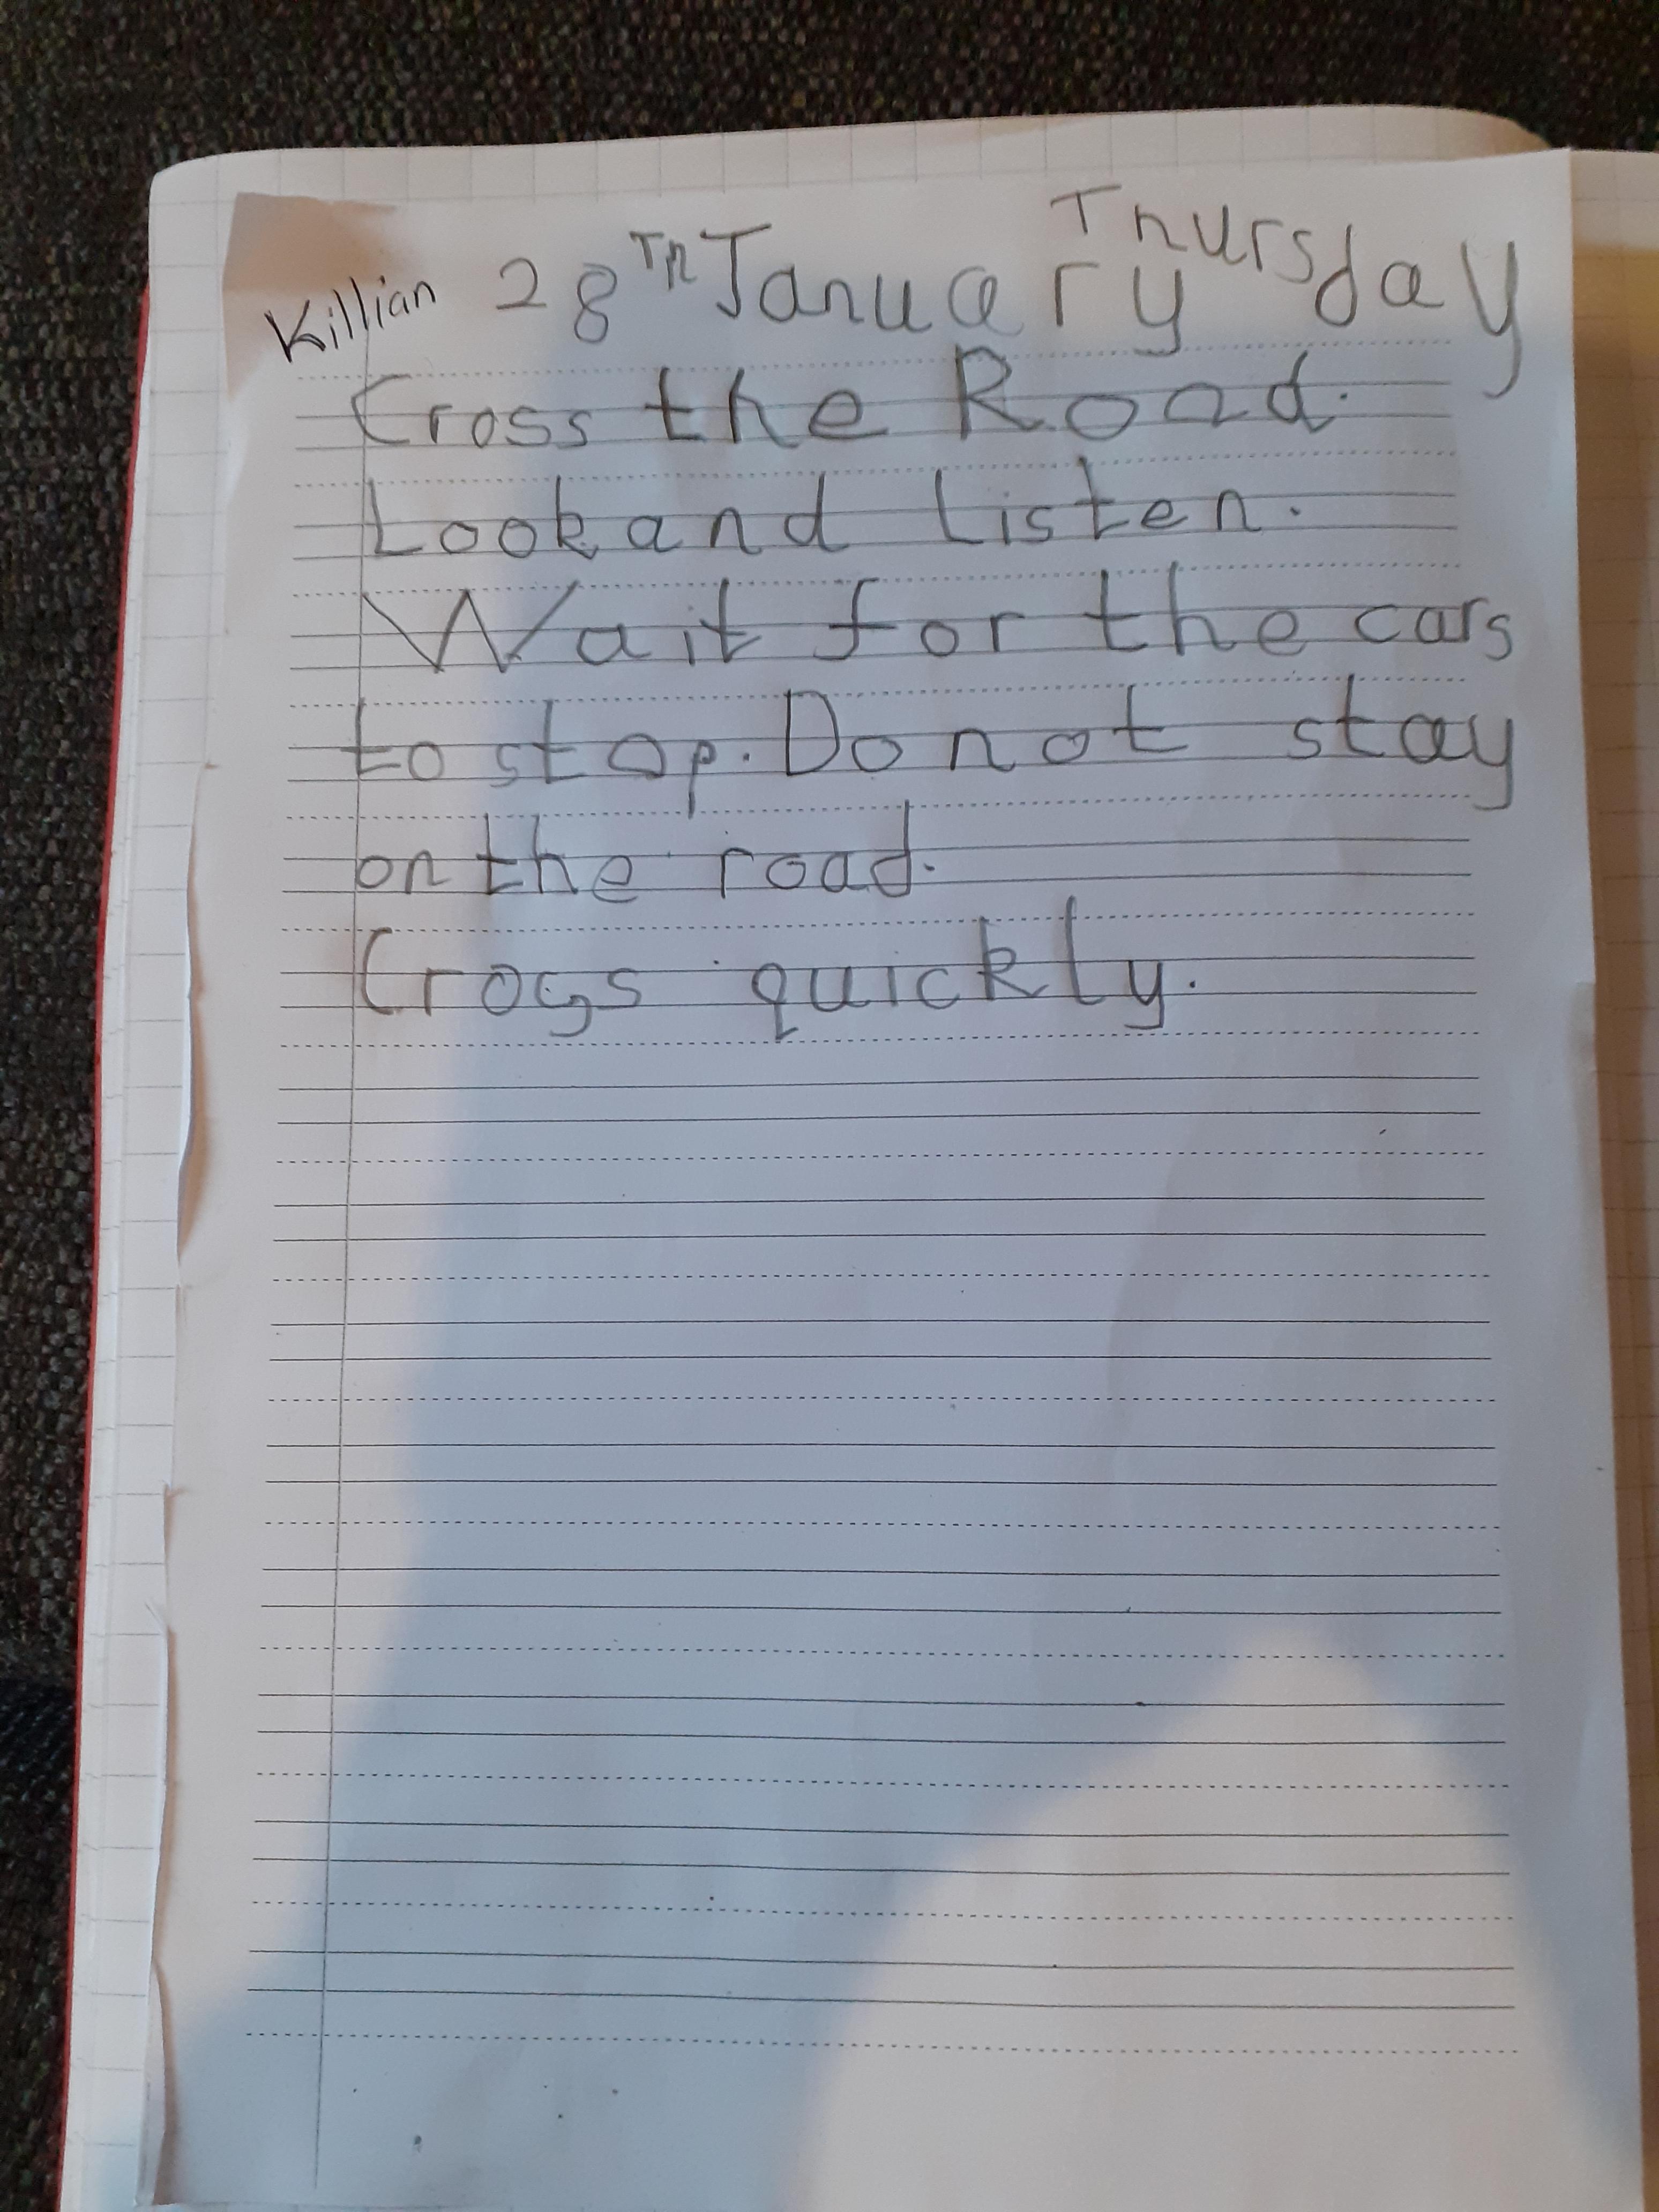 Killian 28Th January Thursday
Cross the Road.
Look and Listen.
Wait for the cars
to stop. Do not stay
on the road.
Cross quickly.